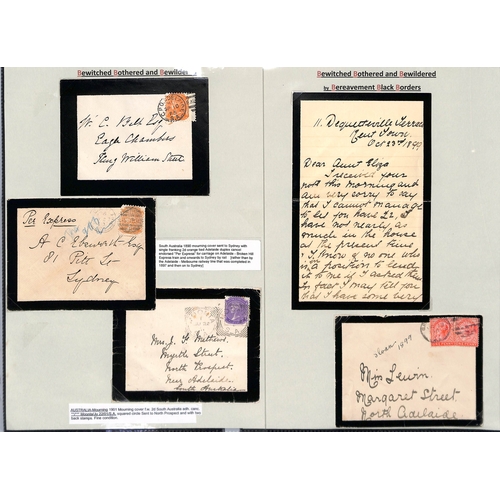 Bewitched Bothered and Bewilde
W. C. Bell Esq
Eagle Chambers
King William Street
Per Express
A C Ebsworth Esq
81 Pitt St
Sydney
South Australia 1898 mourning cover sent to Sydney with
single franking 2d orange tied Adelaide duplex cancel
endorsed "Per Express" for carriage on Adelaide - Broken Hill
Express train and onwards to Sydney by rail (rather than by
the Adelaide - Melbourne railway line that was completed in
1887 and then on to Sydney)
Mrs. J. Mathews,
Myrtle Street,
North Prospect,
Near Adelaide.
South Australia
AUSTRALIA Mourning 1901 Mourning cover f.w. 2d South Australia adh. canc.
squared circle Sent to North Prospect and with two
back stamps. Fine condition
Bewitched Bothered and Bewildered
by Bereavement Black Borders
11. Dequetteville Terrace
Kent Town.
Oct 23rd 1899
Dear Aunt Eliza
I received your
note this morning and
am very sorry to say
that I cannot manage
to let you have £2, I
have not nearly as
much in the house
at the present time,
& I know of no one who
is in a position to lend
it to me if I asked them
In fact I may tell you
I have some very
1899
Miss Lewin.
Margaret Street
North Adelaide